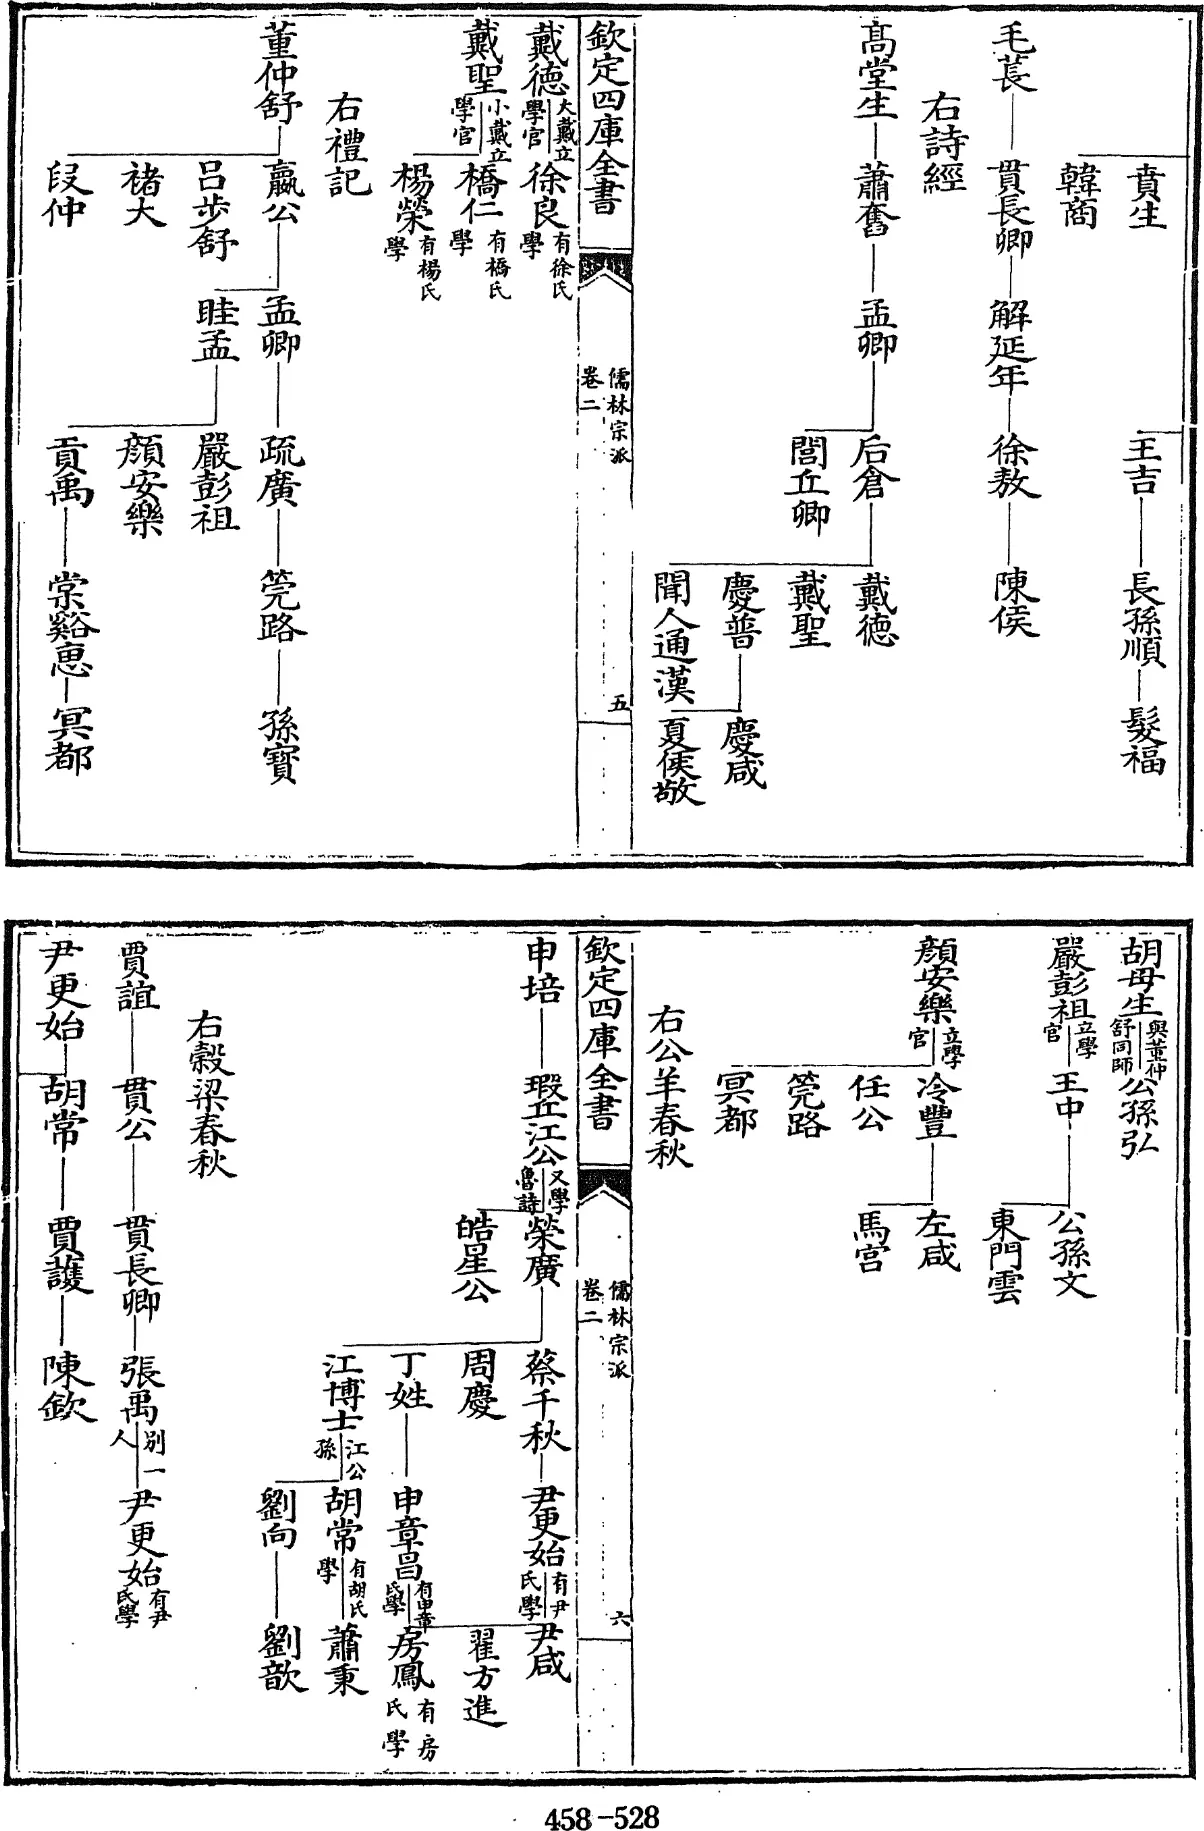 賁生
王吉
長孫順
髮福
韓商
毛萇
貫長卿
解延年
徐敖
陳俠
右詩經
髙堂生
蕭奮
孟卿
后倉
戴德
閭丘卿
戴聖
慶普
慶咸
聞人通漢
夏侯敬
欽定四庫全書
儒林宗派
卷二
五
戴德
大戴立
學官
徐良
有徐氏
學
戴聖
小戴立
學官
橋仁
有橋氏
學
楊榮
有楊氏
學
右禮記
董仲舒
嬴公
孟卿
疏廣
筦路
孫寳
呂步舒
眭孟
嚴彭祖
禇大
顔安樂
段仲
貢禹
棠谿惠
冥都
胡母生
與董仲
舒同師
公孫弘
嚴彭祖
立學
官
王中
公孫文
東門雲
顔安樂
立學
官
冷豐
左咸
任公
馬宫
筦路
冥都
右公羊春秋
欽定四庫全書
儒林宗派
卷二
六
申培
瑕丘江公
又學
魯詩
榮廣
蔡千秋
尹更始
有尹
氏學
尹咸
皓星公
周慶
翟方進
丁姓
申章昌
有申章
氏學
房鳳
有房
氏學
江博士
江公
孫
胡常
有胡氏
學
蕭秉
劉向
劉歆
右榖梁春秋
賈誼
貫公
貫長卿
張禹
别一
人
尹更始
有尹
氏學
尹更始
胡常
賈護
陳欽
458-528